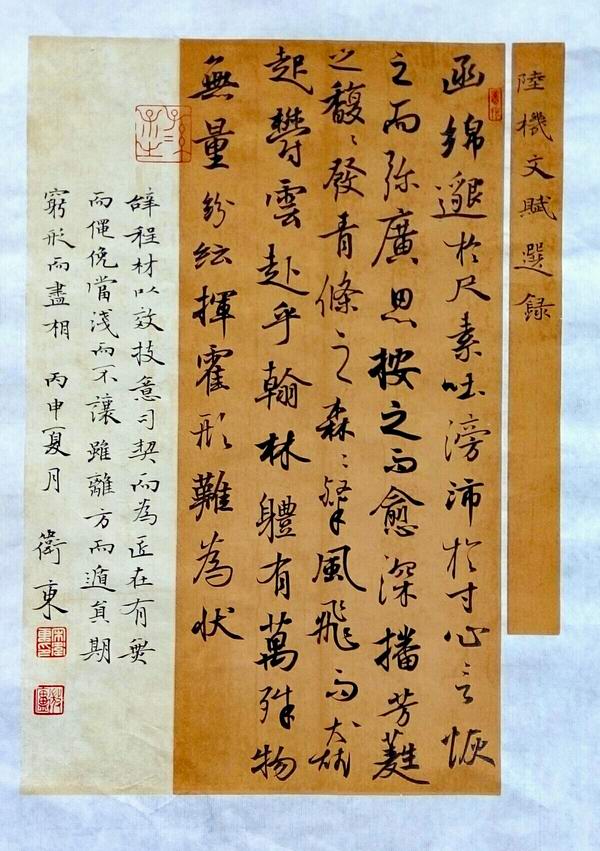 陸機文賦選録
函綿邈於尺素吐滂沛於寸心言恢
之而弥廣思按之而愈深播芳蕤
之馥〻發青條之森〻粲風飛而猋
起鬱雲赴乎翰林體有萬殊物
無量紛紜揮霍形難為狀
辭程材以效技意司契而為匠在有無
而僶俛當淺而不讓雖離方而遁員期
窮形而盡相 丙申夏月 衛東